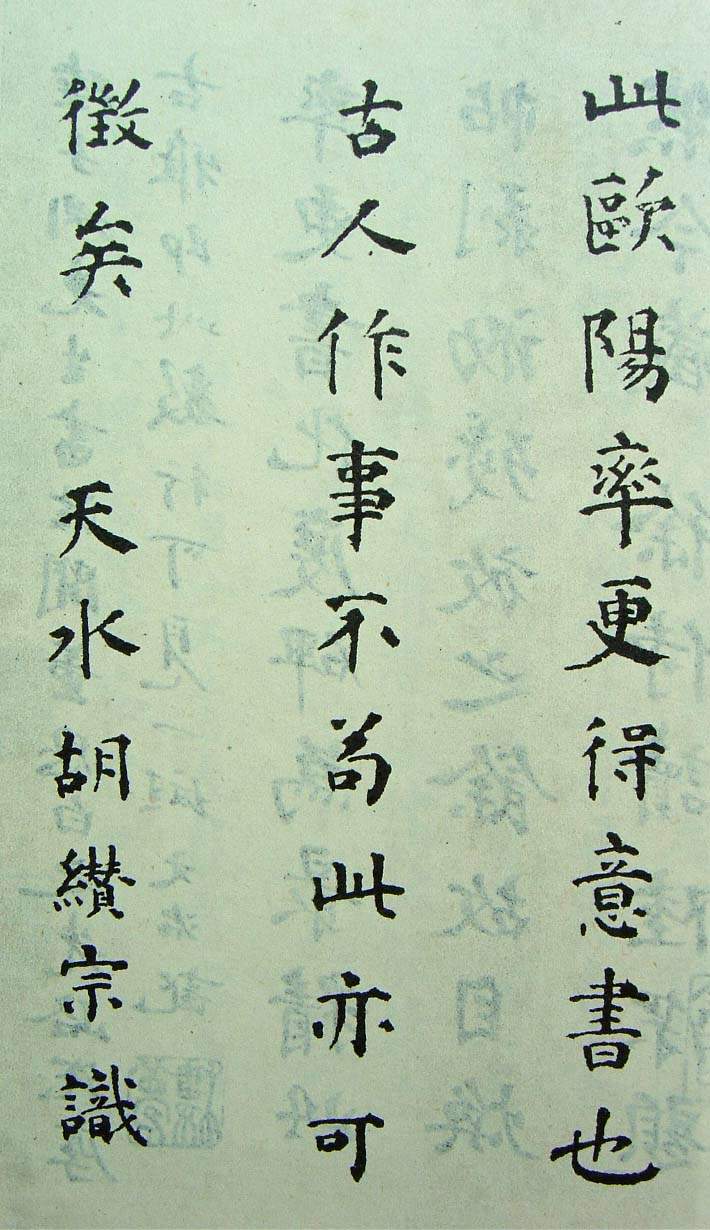 此歐陽率更得意書也
古人作事不苟此亦可
徵矣 天水胡纘宗識